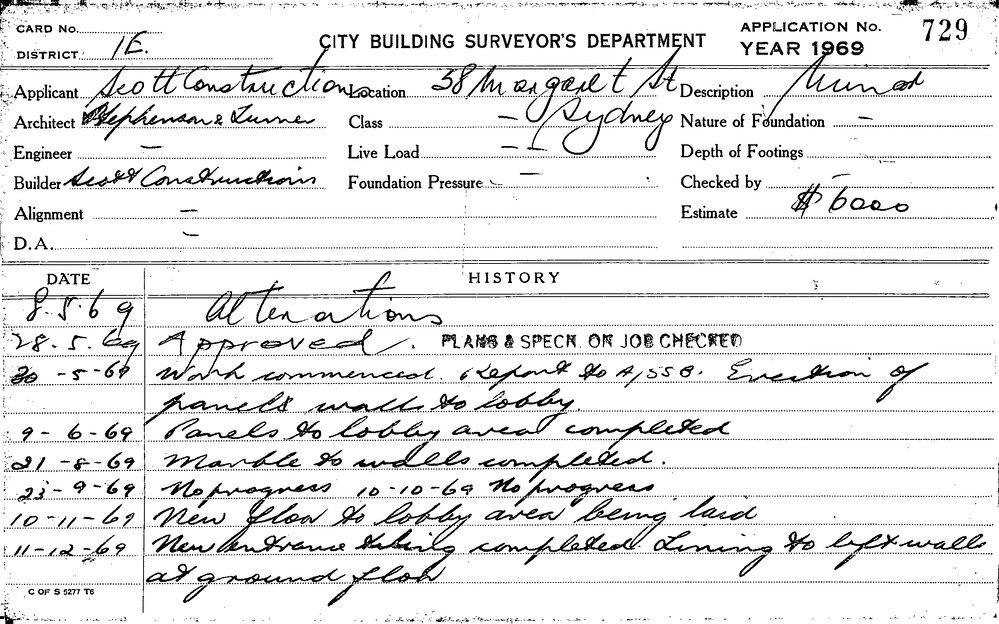 CARD No.
DISTRICT 1E.
CITY BUILDING SURVEYOR'S DEPARTMENT
APPLICATION No. 729
YEAR 1969
Applicant Scott Constructions Location 38 Margaret St Sydney Description Minor
Architect Stephenson & Turner Class – Nature of Foundation –
Engineer – Live Load – – Depth of Footings
Builder Scott Constructions Foundation Pressure – Checked by –
Alignment – Estimate $6000
D.A. –
DATE HISTORY
8.5.69 Alterations
28.5.69 Approved. PLANS & SPECN. ON JOB CHECKED
30-5-69 Work commenced. Report to A/SSB. Erection of
panels walls to lobby.
9-6-69 Panels to lobby area completed
21-8-69 Marble to walls completed.
23-9-69 No progress 10-10-69 No progress
10-11-69 New floor to lobby area being laid
11-12-69 New entrance completed. Lining to lift walls
at ground floor
C OF S 5277 T6